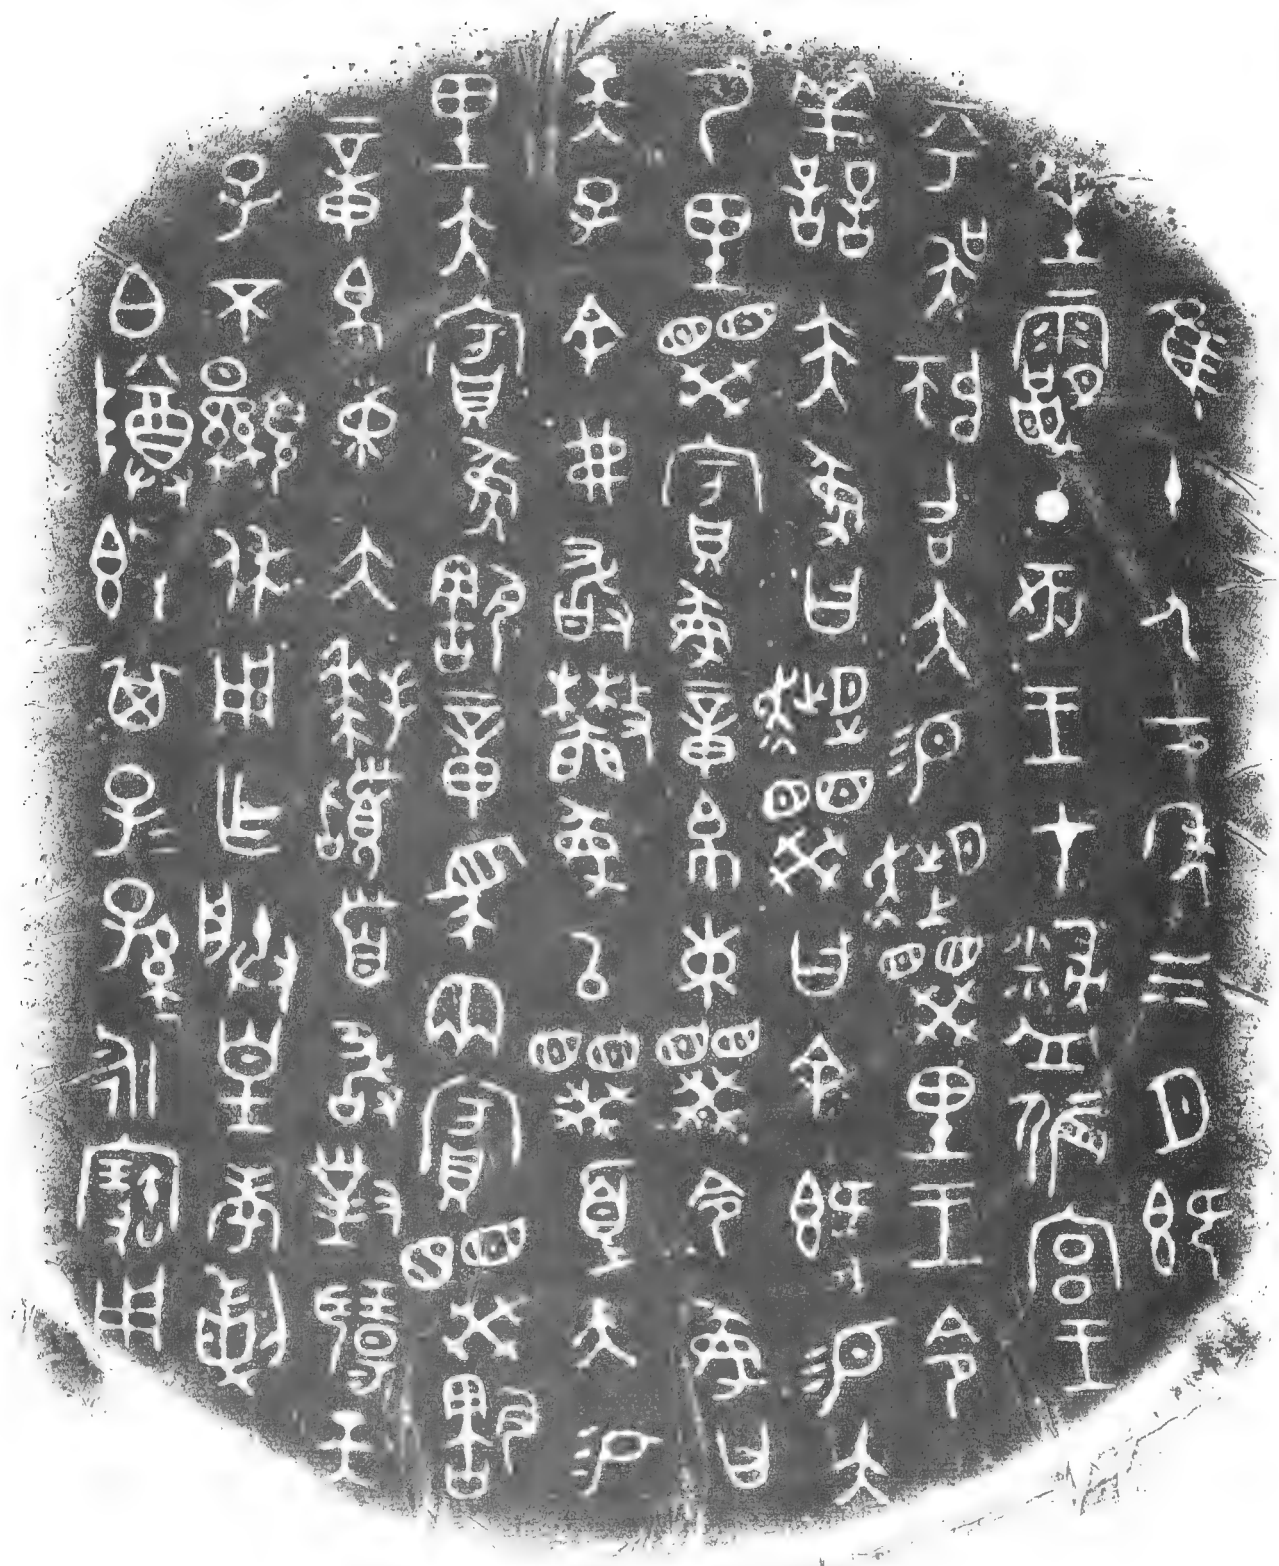 隹十又二年三月既
生霸丁亥王才盩侲宮王
乎吳師召大易趞睽里王令
善夫豕曰趞睽曰余既易大
乃里睽賓豕章帛束睽令豕曰
天子余弗敢吝豕㠯睽履大易
里大賓豕害章馬兩賓睽害
章帛束大拜𩒨首敢對揚天
子不顯休用乍朕皇考剌
白尊簋其子子孫孫永寶用